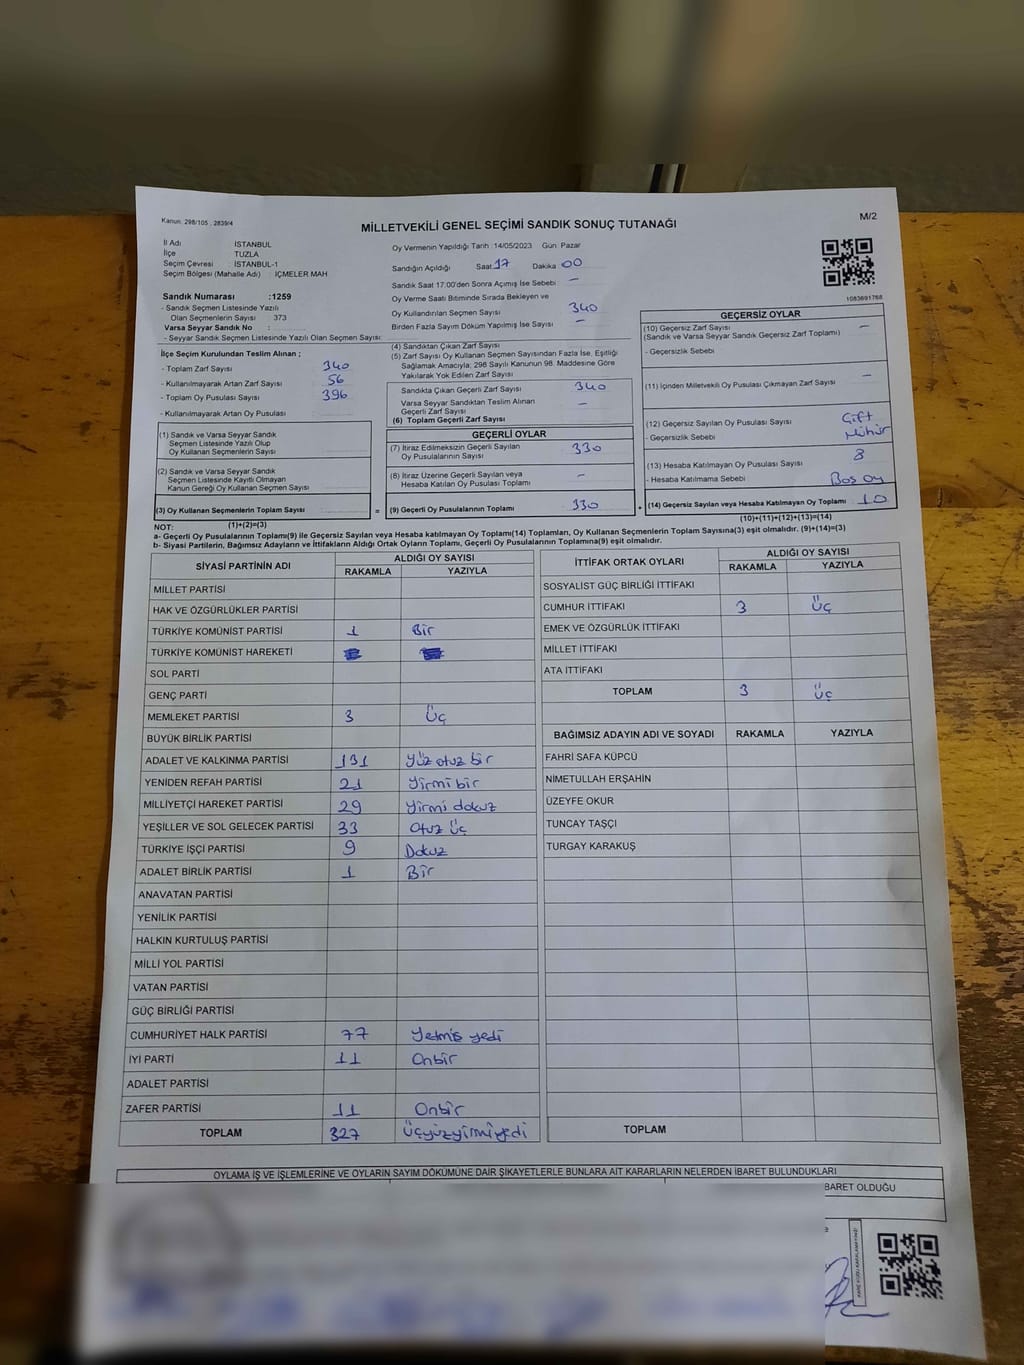 Kanun: 298/105 , 2839/4
MİLLETVEKİLİ GENEL SEÇİMİ SANDIK SONUÇ TUTANAĞI
M/2
İl Adı İSTANBUL
İlçe TUZLA
Seçim Çevresi : İSTANBUL-1
Seçim Bölgesi (Mahalle Adı) : İÇMELER MAH
Sandık Numarası :1259
- Sandık Seçmen Listesinde Yazılı
Olan Seçmenlerin Sayısı 373
Varsa Seyyar Sandık No :
- Seyyar Sandık Seçmen Listesinde Yazılı Olan Seçmen Sayısı:
Oy Vermenin Yapıldığı Tarih :14/05/2023 Gün: Pazar
Sandığın Açıldığı Saat 17 Dakika 00
Sandık Saat 17:00'den Sonra Açımış İse Sebebi -
Oy Verme Saati Bitiminde Sırada Bekleyen ve
Oy Kullandırılan Seçmen Sayısı 340
Birden Fazla Sayım Döküm Yapılmış İse Sayısı -
1083691768
İlçe Seçim Kurulundan Teslim Alınan ;
- Toplam Zarf Sayısı 340
- Kullanılmayarak Artan Zarf Sayısı 56
- Toplam Oy Pusulası Sayısı 396
- Kullanılmayarak Artan Oy Pusulası :
(1) Sandık ve Varsa Seyyar Sandık
Seçmen Listesinde Yazılı Olup
Oy Kullanan Seçmenlerin Sayısı
(2) Sandık ve Varsa Seyyar Sandık
Seçmen Listesinde Kayıtlı Olmayan
Kanun Gereği Oy Kullanan Seçmen Sayısı
(3) Oy Kullanan Seçmenlerin Toplam Sayısı =
(4) Sandıktan Çıkan Zarf Sayısı
(5) Zarf Sayısı Oy Kullanan Seçmen Sayısından Fazla İse, Eşitliği
Sağlamak Amacıyla; 298 Sayılı Kanunun 98. Maddesine Göre
Yakılarak Yok Edilen Zarf Sayısı
Sandıkta Çıkan Geçerli Zarf Sayısı 340
Varsa Seyyar Sandıktan Teslim Alınan
Geçerli Zarf Sayısı -
(6) Toplam Geçerli Zarf Sayısı
GEÇERLİ OYLAR
(7) İtiraz Edilmeksizin Geçerli Sayılan
Oy Pusulalarının Sayısı 330
(8) İtiraz Üzerine Geçerli Sayılan veya
Hesaba Katılan Oy Pusulası Toplamı -
(9) Geçerli Oy Pusulalarının Toplamı 330 +
GEÇERSİZ OYLAR
(10) Geçersiz Zarf Sayısı
(Sandık ve Varsa Seyyar Sandık Geçersiz Zarf Toplamı) -
- Geçersizlik Sebebi
(11) İçinden Milletvekili Oy Pusulası Çıkmayan Zarf Sayısı -
(12) Geçersiz Sayılan Oy Pusulası Sayısı Çift
- Geçersizlik Sebebi Mühür
(13) Hesaba Katılmayan Oy Pusulası Sayısı 8
- Hesaba Katılmama Sebebi Boş oy
(14) Geçersiz Sayılan veya Hesaba Katılmayan Oy Toplamı 10
(10)+(11)+(12)+(13)=(14)
NOT: (1)+(2)=(3)
a- Geçerli Oy Pusulasının Toplamı(9) ile Geçersiz Sayılan veya Hesaba katılmayan Oy Toplamı(14) Toplamları, Oy Kullanan Seçmenlerin Toplam Sayısına(3) eşit olmalıdır. (9)+(14)=(3)
b- Siyasi Partilerin, Bağımsız Adayların ve İttifakların Aldığı Ortak Oyların Toplamı, Geçerli Oy Pusulalarının Toplamına(9) eşit olmalıdır.
SİYASİ PARTİNİN ADI ALDIĞI OY SAYISI
RAKAMLA YAZIYLA
MİLLET PARTİSİ
HAK VE ÖZGÜRLÜKLER PARTİSİ
TÜRKİYE KOMÜNİST PARTİSİ 1 Bir
TÜRKİYE KOMÜNİST HAREKETİ
SOL PARTİ
GENÇ PARTİ
MEMLEKET PARTİSİ 3 Üç
BÜYÜK BİRLİK PARTİSİ
ADALET VE KALKINMA PARTİSİ 131 Yüz otuz bir
YENİDEN REFAH PARTİSİ 21 Yirmi bir
MİLLİYETÇİ HAREKET PARTİSİ 29 Yirmi dokuz
YEŞİLLER VE SOL GELECEK PARTİSİ 33 Otuz üç
TÜRKİYE İŞÇİ PARTİSİ 9 Dokuz
ADALET BİRLİK PARTİSİ 1 Bir
ANAVATAN PARTİSİ
YENİLİK PARTİSİ
HALKIN KURTULUŞ PARTİSİ
MİLLİ YOL PARTİSİ
VATAN PARTİSİ
GÜÇ BİRLİĞİ PARTİSİ
CUMHURİYET HALK PARTİSİ 77 Yetmiş yedi
İYİ PARTİ 11 Onbir
ADALET PARTİSİ
ZAFER PARTİSİ 11 Onbir
TOPLAM 327 Üçyüzyirmiyedi
İTTİFAK ORTAK OYLARI ALDIĞI OY SAYISI
RAKAMLA YAZIYLA
SOSYALİST GÜÇ BİRLİĞİ İTTİFAKI
CUMHUR İTTİFAKI 3 Üç
EMEK VE ÖZGÜRLÜK İTTİFAKI
MİLLET İTTİFAKI
ATA İTTİFAKI
TOPLAM 3 Üç
BAĞIMSIZ ADAYIN ADI VE SOYADI RAKAMLA YAZIYLA
FAHRİ SAFA KÜPCÜ
NİMETULLAH ERŞAHİN
ÜZEYFE OKUR
TUNCAY TAŞÇI
TURGAY KARAKUŞ
TOPLAM
OYLAMA İŞ VE İŞLEMLERİNE VE OYLARIN SAYIM DÖKÜMÜNE DAİR ŞİKAYETLERLE BUNLARA AİT KARARLARIN NELERDEN İBARET BULUNDUKLARI
BARET OLDUĞU